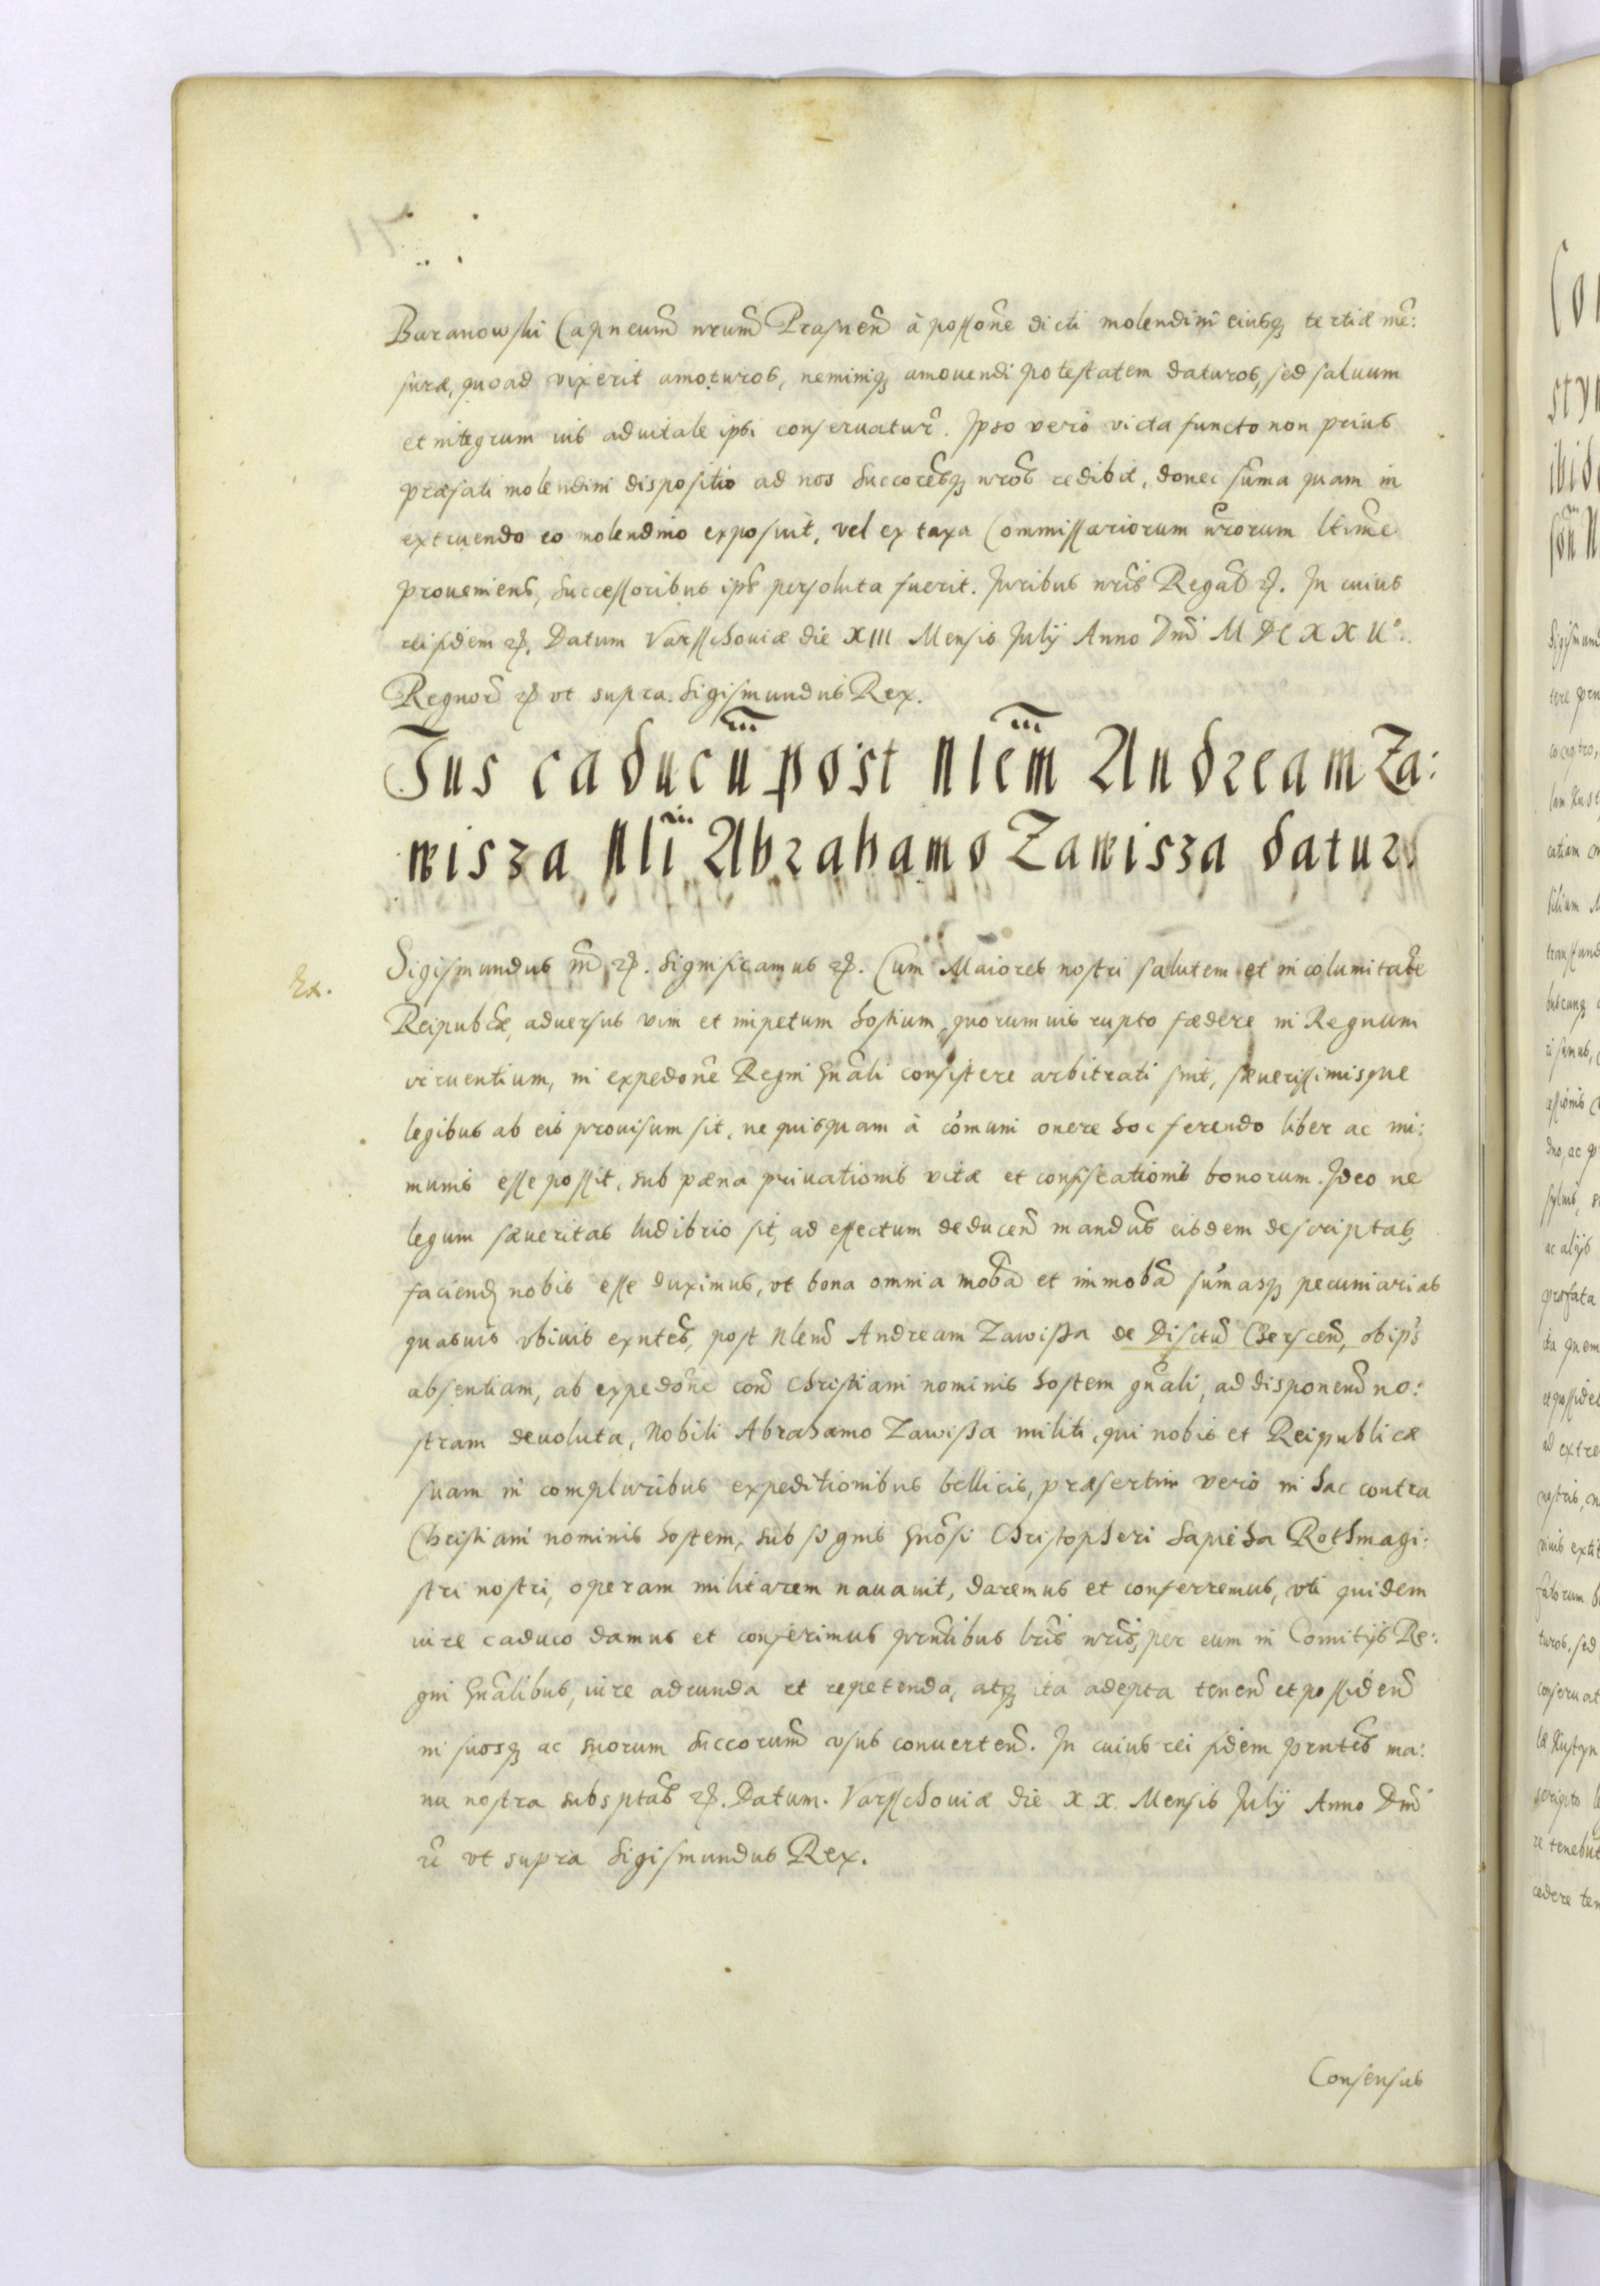 Baranowski Capneum̃ nrum̃ Prasnen̄ à possone dicti molendini eiusq tertiæ me:
suræ, quoad vixerit amoturos, neminiq amouendi potestatem daturos, sed saluum
et integrum ius aduitale ipsi conseruatur̃. Ipso vero vita functo non prius
præfati molendini dispositio ad nos Succoresq nros redibit, donec sũma quam in
extruendo eo molendino exposuit, vel ex taxa Commissariorum nrorum ltime
proueniens, successoribus ips persoluta fuerit. Iuribus nris Regal &. In cuius
rei fidem &. Datum Varsschouiæ die XIII Mensis Iulij Anno Dni M DC XX II°.
Regnor̃ & vt supra. Sigismundus Rex.
Ius caducũ post Nlem̃ Andream Za:
wisza Nli Abrahamo Zawisza datur.
Ex.
Sigismundus III &. Significamus &. Cum Maiores nostri salutem et incolumitate
Reipubcæ, aduersus vim et impetum hostium, quorumuis rupto fædere in Regnum
irruentium, in expedone Regni gnali consistere arbitrati sint, sæuerissimisque
legibus ab eis prouisum sit, ne quisquam à cõmuni onere hoc ferendo liber ac im:
munis esse possit, sub pæna priuationis vitæ et confiscationis bonorum. Ideo ne
legum sæueritas ludibrio sit, ad effectum deducend mandus eisdem descriptas,
faciend nobis esse duximus, vt bona omnia moba et immoba sũmasq pecuniarias
quasuis vbiuis exntes, post Nlem Andream Zawissa de Disctu Cherscen, ob ips
absentiam, ab expedone con Christiani nominis hostem gnali, ad disponend no:
stram deuoluta, Nobili Abrahamo Zawissa militi, qui nobis et Reipublicæ
suam in compluribus expeditionibus bellicis, præsertim vero in hac contra
Christiani nominis hostem, sub signis gnosi Christopheri Sapieha Rothmagi:
stri nostri, operam militarem nauauit, daremus et conferremus, vti quidem
iure caduco damus et conferimus prntibus lris nris, per eum in Comitijs Re:
gni gnalibus, iure adeunda et repetenda, atq ita adepta tenend et possidend
in suosq ac suorum Succorum vsus conuertend. In cuius rei fidem prntes ma:
nu nostra subsptas &. Datum. Varsschouiæ die XX Mensis Iulij Anno Dni
ũ vt supra Sigismundus Rex.
Consensus